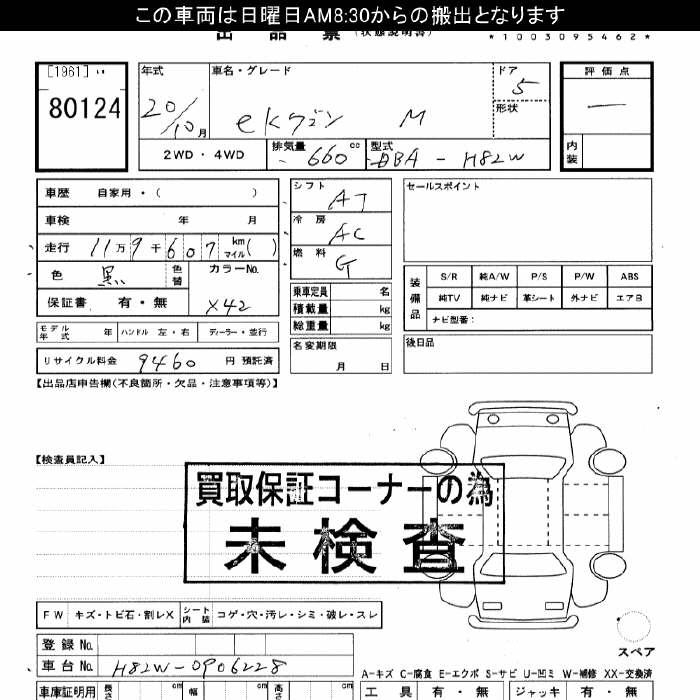 この車両は日曜日AM8:30からの搬出となります
出品票 (状態説明書)
*1003095462*
[1961]
80124
年式
20/10月
車名・グレード
ekワゴン M
ドア
5
形状
評価点
—
内装
2WD・4WD
排気量
660cc
型式
DBA-H82W
車歴 自家用・( )
車検 年 月
走行 11万9千607 km マイル( )
色 黒
色替
カラーNo.
X42
保証書 有・無
モデル年式 年
ハンドル 左・右
ディーラー・並行
リサイクル料金 9460 円 預託済
シフト
AT
冷房
AC
燃料
G
乗車定員 名
積載量 kg
総重量 kg
名変期限
月 日
セールスポイント
装備品
S/R 純A/W P/S P/W ABS
純TV 純ナビ 革シート 外ナビ エアB
ナビ型番:
後日品
【出品店申告欄(不良箇所・欠品・注意事項等)】
【検査員記入】
買取保証コーナーの為
未検査
FW キズ・トビ石・割レX
シート内装 コゲ・穴・汚レ・シミ・破レ・スレ
スペア
登録No.
車台No. H82W-0906228
A-キズ C-腐食 E-エクボ S-サビ U-凹ミ W-補修 XX-交換済
車庫証明用 長さ cm 幅 cm 高さ cm
工具 有・無 ジャッキ 有・無